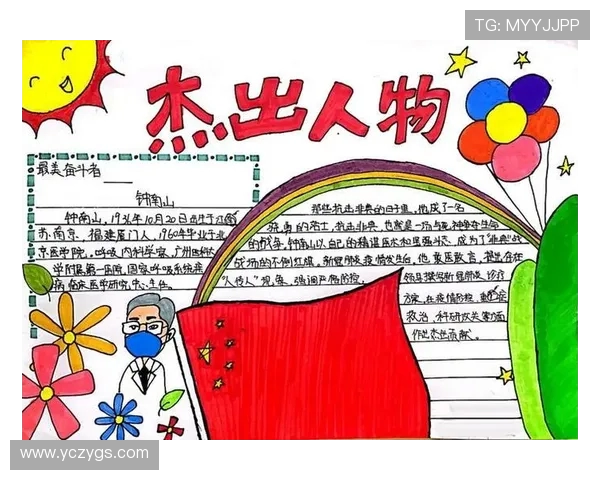 TG: MYYJJPP
杰出人物
最美奋斗者
钟南山
钟南山，1936年10月20日出生于江苏
苏·南京，福建厦门人，1960年毕业于北
京医学院，呼吸内科学家，广州医科大
学附属第一医院，国家呼吸系统疾
病临床医学研究中心主任。
那些抗击非典的日子里，他成了一名
抗击非典，也就是一场与死神争夺生命
的战争，钟南山以自己的精湛医术和坚强斗志，成为了"非典"
战场的不倒红旗，新冠肺炎疫情发生后，他敢医敢言，提出存在
"人传人"现象，强调严格防控，
领导撰写新冠肺炎诊疗
方案，在疫情防控、重症
救治、科研攻关等方面
作出杰出贡献。
www.yczygs.com